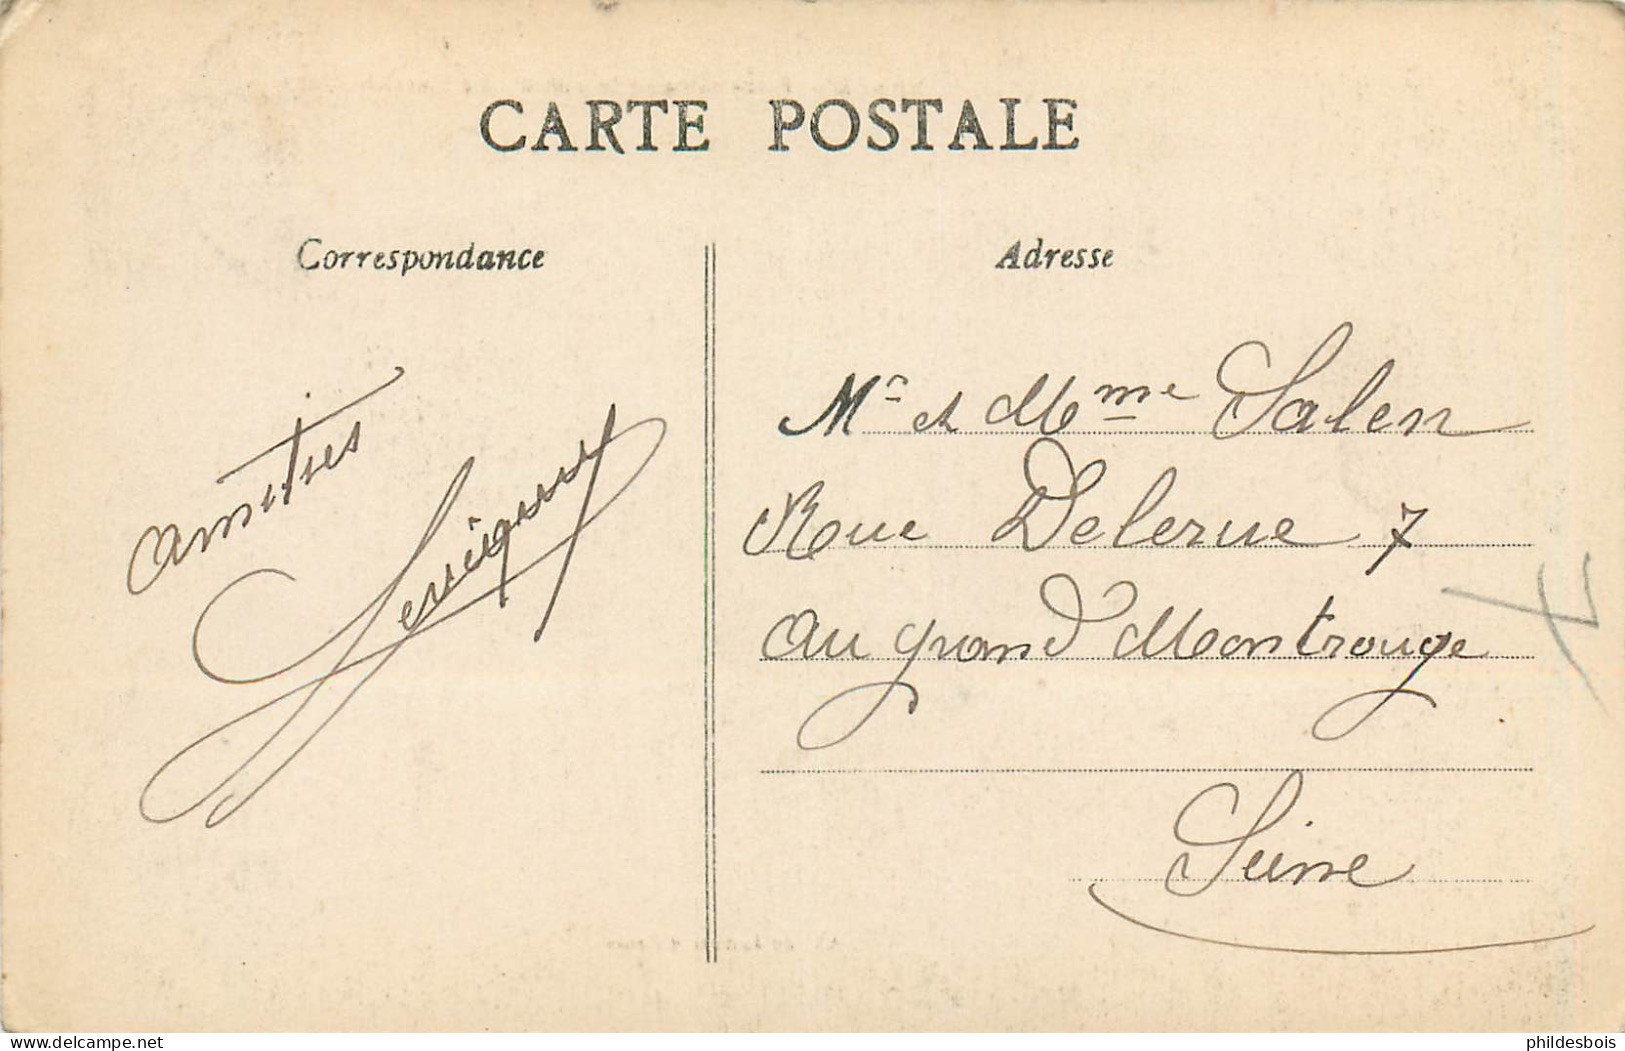 CARTE POSTALE
Correspondance
Adresse
amitiés
Mr et Mme Salen
Rue Delerue 7
au grand Montrouge
Seine
www.delcampe.net
phildesbois